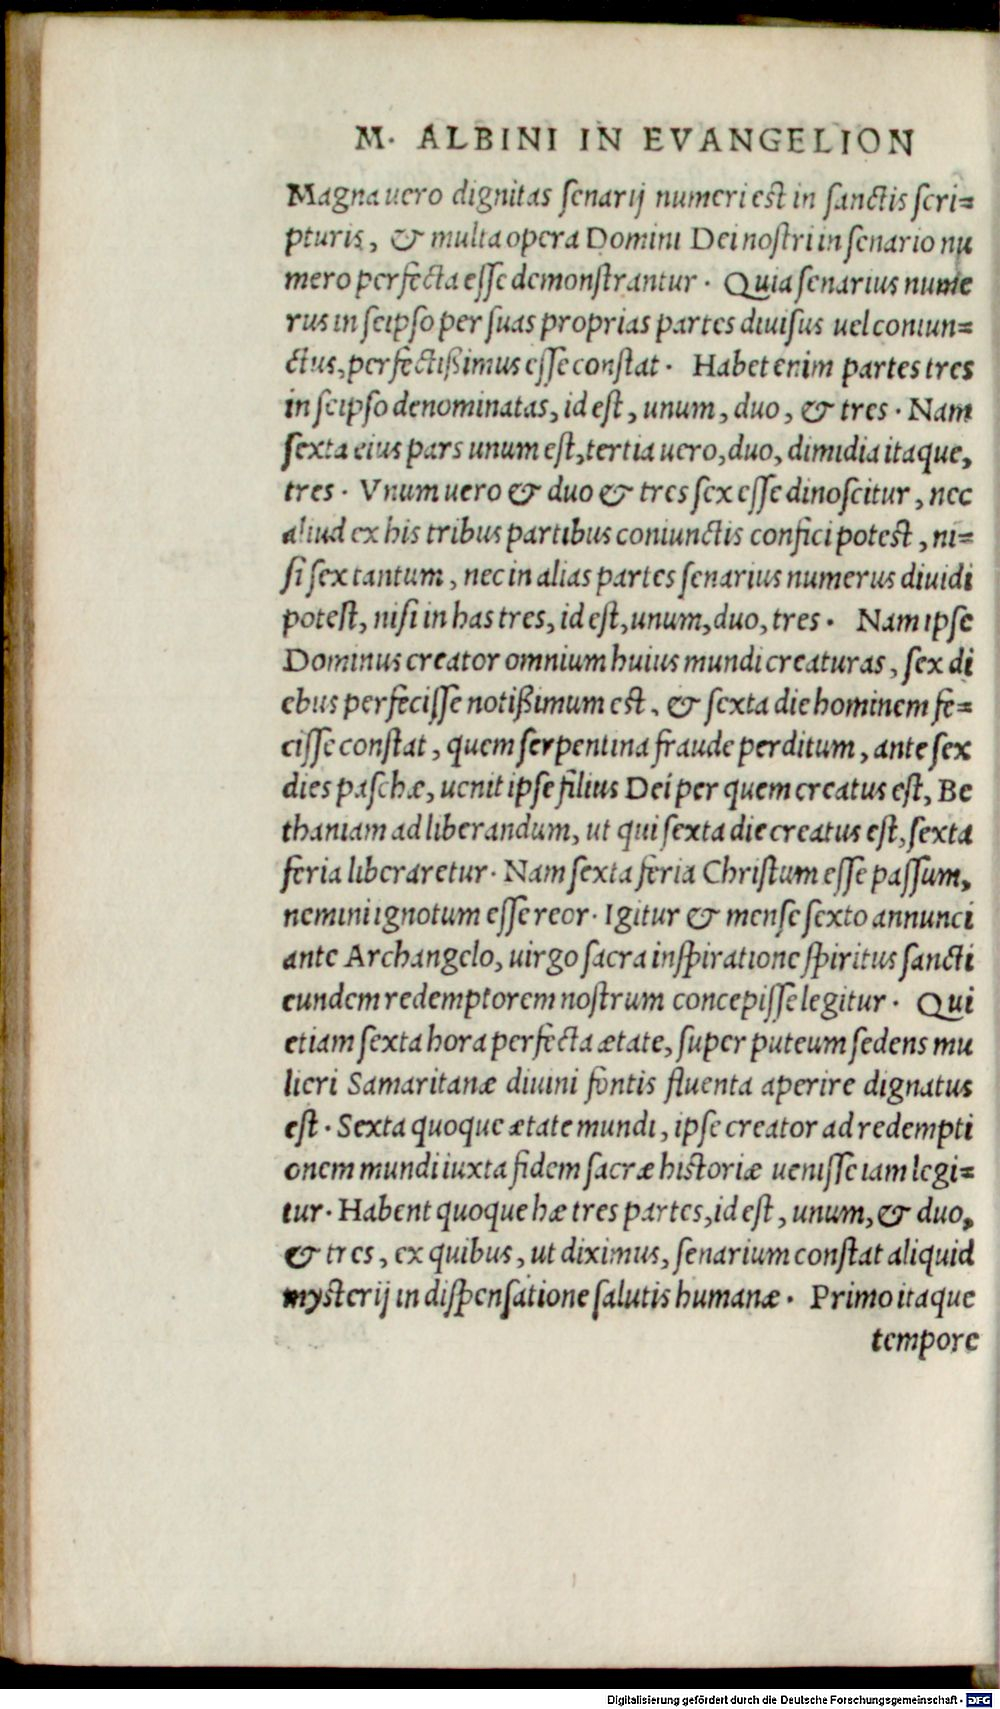 M. ALBINI IN EVANGELION
Magna uero dignitas ſenarij numeri est in ſanctis ſcri=
pturis, & multa opera Domini Dei noſtri in ſenario nu
mero perfecta eſſe demonſtrantur. Quia ſenarius nume
rus in ſeipſo per ſuas proprias partes diuiſus uel coniun=
ctus, perfectißimus eſſe conſtat. Habet enim partes tres
in ſeipſo denominatas, id eſt, unum, duo, & tres. Nam
ſexta eius pars unum eſt, tertia uero, duo, dimidia itaque,
tres. Vnum uero & duo & tres ſex eſſe dinoſcitur, nec
aliud ex his tribus partibus coniunctis confici potest, ni=
ſi ſex tantum, nec in alias partes ſenarius numerus diuidi
poteſt, niſi in has tres, id eſt, unum, duo, tres. Nam ipſe
Dominus creator omnium huius mundi creaturas, ſex di
ebus perfeciſſe notißimum est, & ſexta die hominem fe=
ciſſe conſtat, quem ſerpentina fraude perditum, ante ſex
dies paſchæ, uenit ipſe filius Dei per quem creatus eſt, Be
thaniam ad liberandum, ut qui ſexta die creatus eſt, ſexta
feria liberaretur. Nam ſexta feria Chriſtum eſſe paſſum,
nemini ignotum eſſe reor. Igitur & menſe ſexto annunci
ante Archangelo, uirgo ſacra inſpiratione ſpiritus ſancti
eundem redemptorem noſtrum concepiſſe legitur. Qui
etiam ſexta hora perfecta ætate, ſuper puteum ſedens mu
lieri Samaritanæ diuini fontis fluenta aperire dignatus
eſt. Sexta quoque ætate mundi, ipſe creator ad redempti
onem mundi iuxta fidem ſacræ historiæ ueniſſe iam legi=
tur. Habent quoque hæ tres partes, id eſt, unum, & duo,
& tres, ex quibus, ut diximus, ſenarium conſtat aliquid
mysterij in diſpenſatione ſalutis humanæ. Primo itaque
tempore
Digitalisierung gefördert durch die Deutsche Forschungsgemeinschaft - DFG